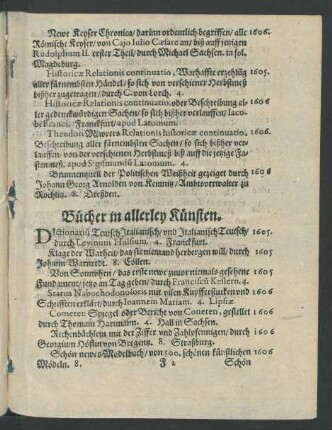 Newe Keyser Chronica/darinn ordentlich begriffen/alle 1606.
Römische Keyser/ von Cajo Iulio Cæsare an/biß auff jetzigen
Rudolphum II. erster Theil/ durch Michael Sachsen. in fol.
Magdeburg.
Historicæ Relationis continuatio, Warhaffte erzehlūg 1605.
aller fürnembsten Händel/ so sich von verschiener Herbstmeß
bißher zugetragen/durch C. von Lorch. 4.
Historicæ Relationis continuatio. oder Beschreibung al- 1606
ler gedenckwürdigen Sachen/so sich bißher verlauffen/Iaco-
bi Franci. Franckfurt/apud Latomum.
Theodori Meureræ Relationis historicæ continuatio, 1606.
Beschreibung aller fürnembsten Sachen/ so sich bißher ver-
lauffen/ von der verschienen Herbstmeß biß auff die jetzige Fa-
sten meß. apud Sigismundū Latomum. 4.
Brunnenquell der Politischen Weißheit gezeiget durch 1606
Johann Georg Arnolden von Kemnitz/Ambtsverwalter zu
Rochlitz. 8. Dreßden.
Bücher in allerley Künsten.
DIctionariū Teutsch Italianisch/ vnd Italianisch Teutsch/ 1605.
durch Levinum Hulsium. 4. Franckfurt.
Klage der Warheit/das sie niemand herbergen will/ durch 1605
Johann Warnredt. 8. Cöllen.
Von Sonnvhren/ das erste newe zuuor niemals gesehene 1605
Fundament/jetzo an Tag geben/durch Franciscū Kesslern. 4.
Status Nabuchodonosoris mit vielen Kupfferstucken vnd 1606
Schrifften erklärt/durch Ioannem Mariam. 4. Lipsiæ
Cometen Spiegel oder Bericht von Cometen, gestellet 1606
durch Thomam Hartmann. 4. Hall in Sachsen.
Rechenbüchlein mit der Ziffer vnd Zahlpfennigen/durch 1606
Georgium Höflin von Bregentz. 8. Straßburg.
Schön newes Modelbuch/ von 500. schönen künstlichen 1606
Mödeln. 8. F 2 Schön